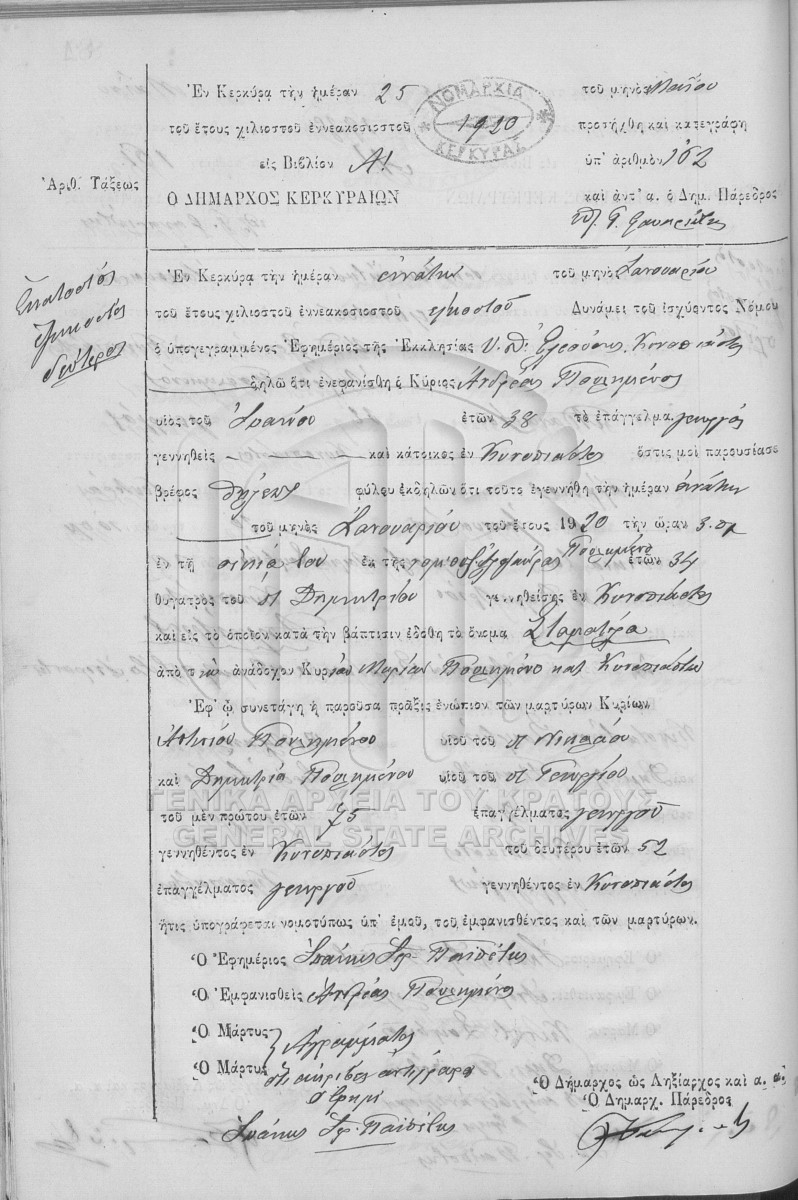 Ἐν Κερκύρᾳ τὴν ἡμέραν 25 τοῦ μηνὸς Μαΐου
τοῦ ἔτους χιλιοστοῦ ἐννεακοσιοστοῦ 1920 προσήχθη καὶ κατεγράφη
ΝΟΜΑΡΧΙΑ ΚΕΡΚΥΡΑΣ
εἰς Βιβλίον Α! ὑπ' ἀριθμὸν 152
Ἀριθ. Τάξεως
Ὁ ΔΗΜΑΡΧΟΣ ΚΕΡΚΥΡΑΙΩΝ καὶ ἀντ' α. ὁ Δημ. Πάρεδρος
Ἑκατοστὸς
δεύτερος
Ἐν Κερκύρᾳ τὴν ἡμέραν ἐννάτην τοῦ μηνὸς Ἰανουαρίου
τοῦ ἔτους χιλιοστοῦ ἐννεακοσιοστοῦ εἰκοστοῦ Δυνάμει τοῦ ἰσχύοντος Νόμου
ὁ ὑπογεγραμμένος Ἐφημέριος τῆς Ἐκκλησίας Υ. Θ. Ἐλεούσης Κυνοπιάστες
δηλῶ ὅτι ἐνεφανίσθη ὁ Κύριος Ἀνδρέας Πουλημένος
υἱὸς τοῦ Ἰωάννου ἐτῶν 38 τὸ ἐπάγγελμα γεωργὸς
γεννηθεὶς καὶ κάτοικος ἐν Κυνοπιάστες ὅστις μοὶ παρουσίασε
βρέφος θήλεος φύλου ἐκδηλῶν ὅτι τοῦτο ἐγεννήθη τὴν ἡμέραν ἐννάτην
τοῦ μηνὸς Ἰανουαρίου τοῦ ἔτους 1920 τὴν ὥραν 3 πμ
ἐν τῇ οἰκίᾳ του ἐκ τῆς νομ. συζύγου Πουλημένου ἐτῶν 34
θυγατρὸς τοῦ π Δημητρίου γεννηθείσης ἐν Κυνοπιάστες
καὶ εἰς τὸ ὁποῖον κατὰ τὴν βάπτισιν ἐδόθη τὸ ὄνομα Σταματέλα
ἀπὸ τὴν ἀνάδοχον Κυρίαν Μαρίαν Πουλημένου κατ Κυνοπιάστες
Ἐφ' ᾧ συνετάγη ἡ παροῦσα πρᾶξις ἐνώπιον τῶν μαρτύρων Κυρίων
Ἀντωνίου Πουλημένου υἱοῦ τοῦ π Νικολάου
καὶ Δημητρίου Πουλημένου υἱοῦ τοῦ π Γεωργίου
ΓΕΝΙΚΑ ΑΡΧΕΙΑ ΤΟΥ ΚΡΑΤΟΥΣ
τοῦ μὲν πρώτου ἐτῶν 75 ἐπαγγέλματος γεωργοῦ
GENERAL STATE ARCHIVES
γεννηθέντος ἐν Κυνοπιάστες τοῦ δευτέρου ἐτῶν 52
ἐπαγγέλματος γεωργοῦ γεννηθέντος ἐν Κυνοπιάστες
ἥτις ὑπογράφεται νομοτύπως ὑπ' ἐμοῦ, τοῦ ἐμφανισθέντος καὶ τῶν μαρτύρων.
Ὁ Ἐφημέριος Ἰωάννης Σπ. Παϊπέτης
Ὁ Ἐμφανισθεὶς Ἀνδρέας Πουλημένος
Ὁ Μάρτυς Ἀγράμματοι
Ὁ Μάρτυς Ὅτι ἀκριβὲς ἀντίγραφον
Ὁ Ἐφημ
Ὁ Δήμαρχος ὡς Ληξίαρχος καὶ α. α.
Ὁ Δημαρχ. Πάρεδρος
Ἰωάννης Σπ. Παϊπέτης